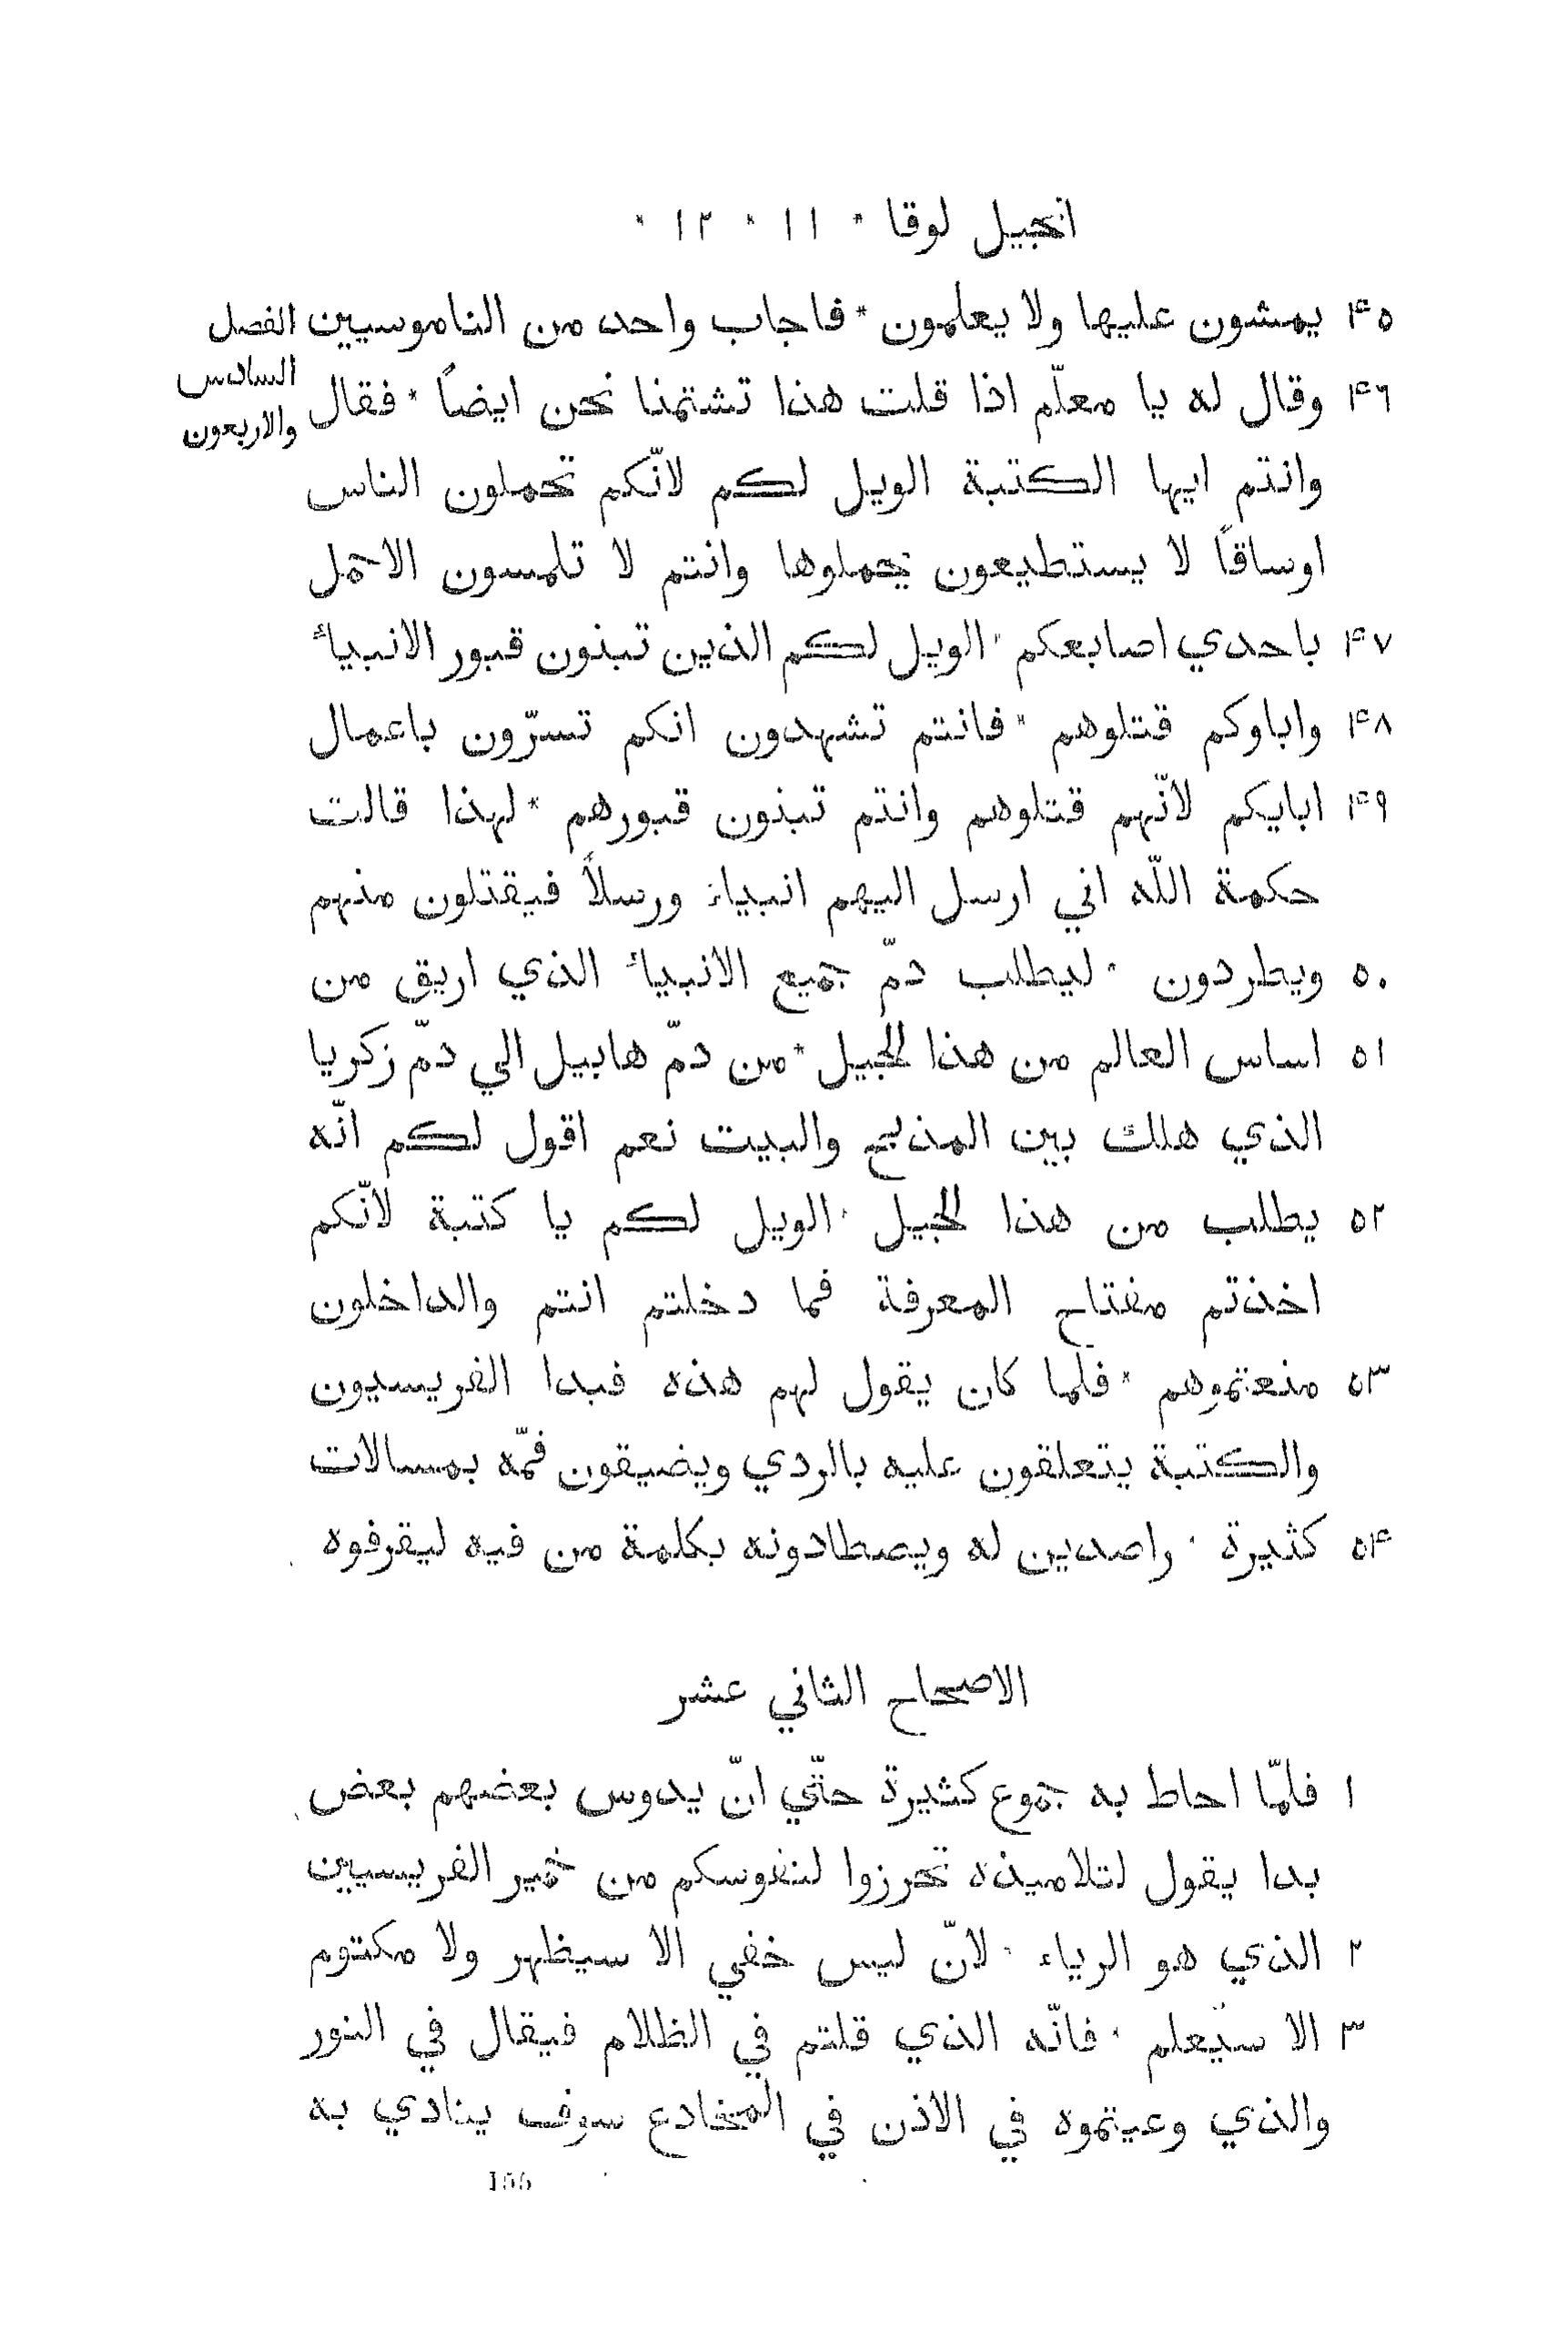 انجيل لوقا * ١١ * ١٢ *
٤٥ يمشون عليها ولا يعلمون * فاجاب واحد من الناموسيين
الفصل
السادس
والاربعون
٤٦ وقال له يا معلّم اذا قلت هذا تشتمنا نحن ايضاً * فقال
وانتم ايها الكتبة الويل لكم لانّكم تحملون الناس
اوساقاً لا يستطيعون يحملوها وانتم لا تلمسون الاحمل
٤٧ باحدي اصابعكم * الويل لكم الذين تبنون قبور الانبياء
٤٨ واباوكم قتلوهم * فانتم تشهدون انكم تسرّون باعمال
٤٩ ابايكم لانّهم قتلوهم وانتم تبنون قبورهم * لهذا قالت
حكمة اللّه اني ارسل اليهم انبياء ورسلاً فيقتلون منهم
٥٠ ويطردون * ليطلب دمّ جميع الانبياء الذي اريق من
٥١ اساس العالم من هذا الجيل * من دمّ هابيل الي دمّ زكريا
الذي هلك بين المذبح والبيت نعم اقول لكم انّه
٥٢ يطلب من هذا الجيل * الويل لكم يا كتبة لانّكم
اخذتم مفتاح المعرفة فما دخلتم انتم والداخلون
٥٣ منعتموهم * فلما كان يقول لهم هذه فبدا الفريسيون
والكتبة يتعلقون عليه بالردي ويضيقون فمّه بمسالات
٥٤ كثيرة * راصدين له ويصطادونه بكلمة من فيه ليقرفوه
الاصحاح الثاني عشر
١ فلمّا احاط به جموع كثيرة حتّي انّ يدوس بعضهم بعض
بدا يقول لتلاميذه تحرزوا لنفوسكم من خمير الفريسيين
٢ الذي هو الرياء * لانّ ليس خفي الا سيظهر ولا مكتوم
٣ الا سيُعلم * فانّه الذي قلتم في الظلام فيقال في النور
والذي وعيتموه في الاذن في المخادع سوف ينادي به